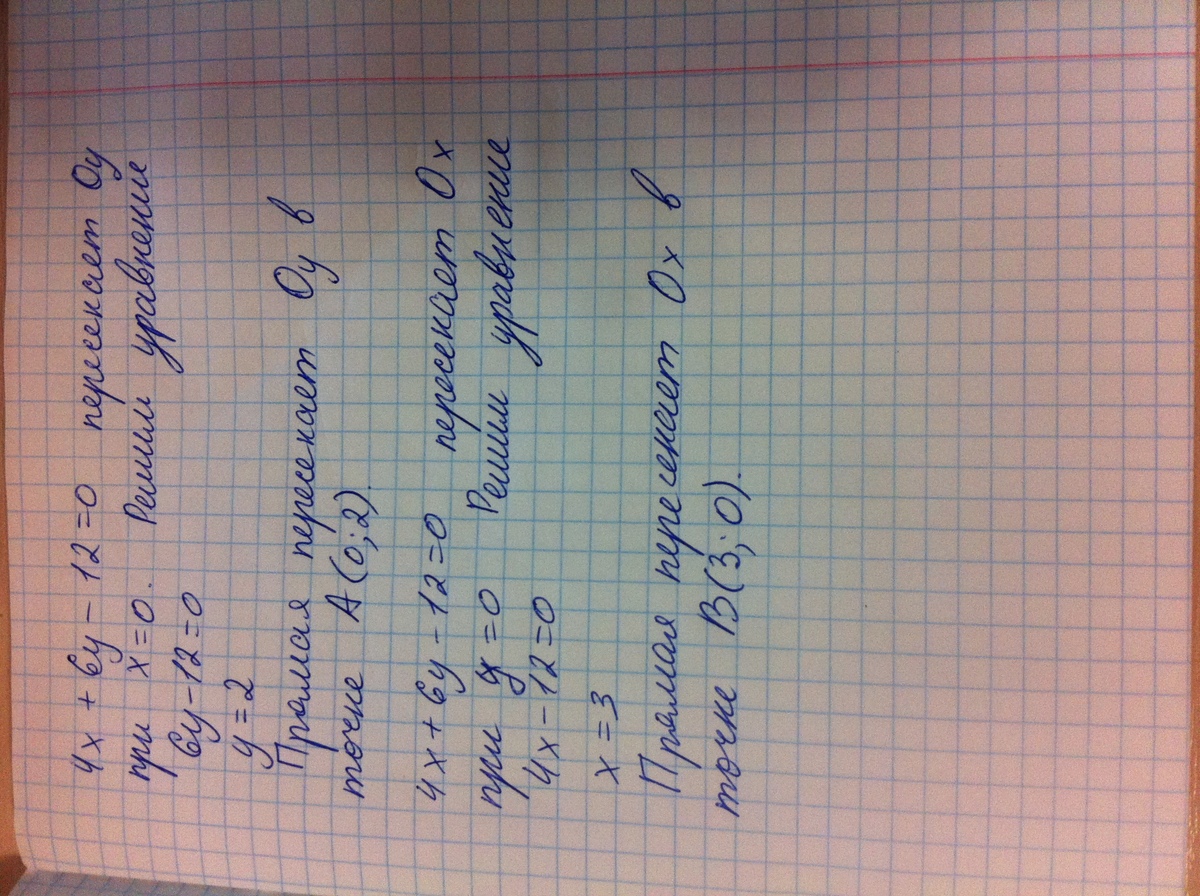 4x + 6y - 12 = 0 пересекает Oy
при x = 0. Решим уравнение
6y - 12 = 0
y = 2
Прямая пересекает Oy в
точке A(0; 2).
4x + 6y - 12 = 0 пересекает Ox
при y = 0 Решим уравнение
4x - 12 = 0
x = 3
Прямая пересекает Ox в
точке B(3; 0).